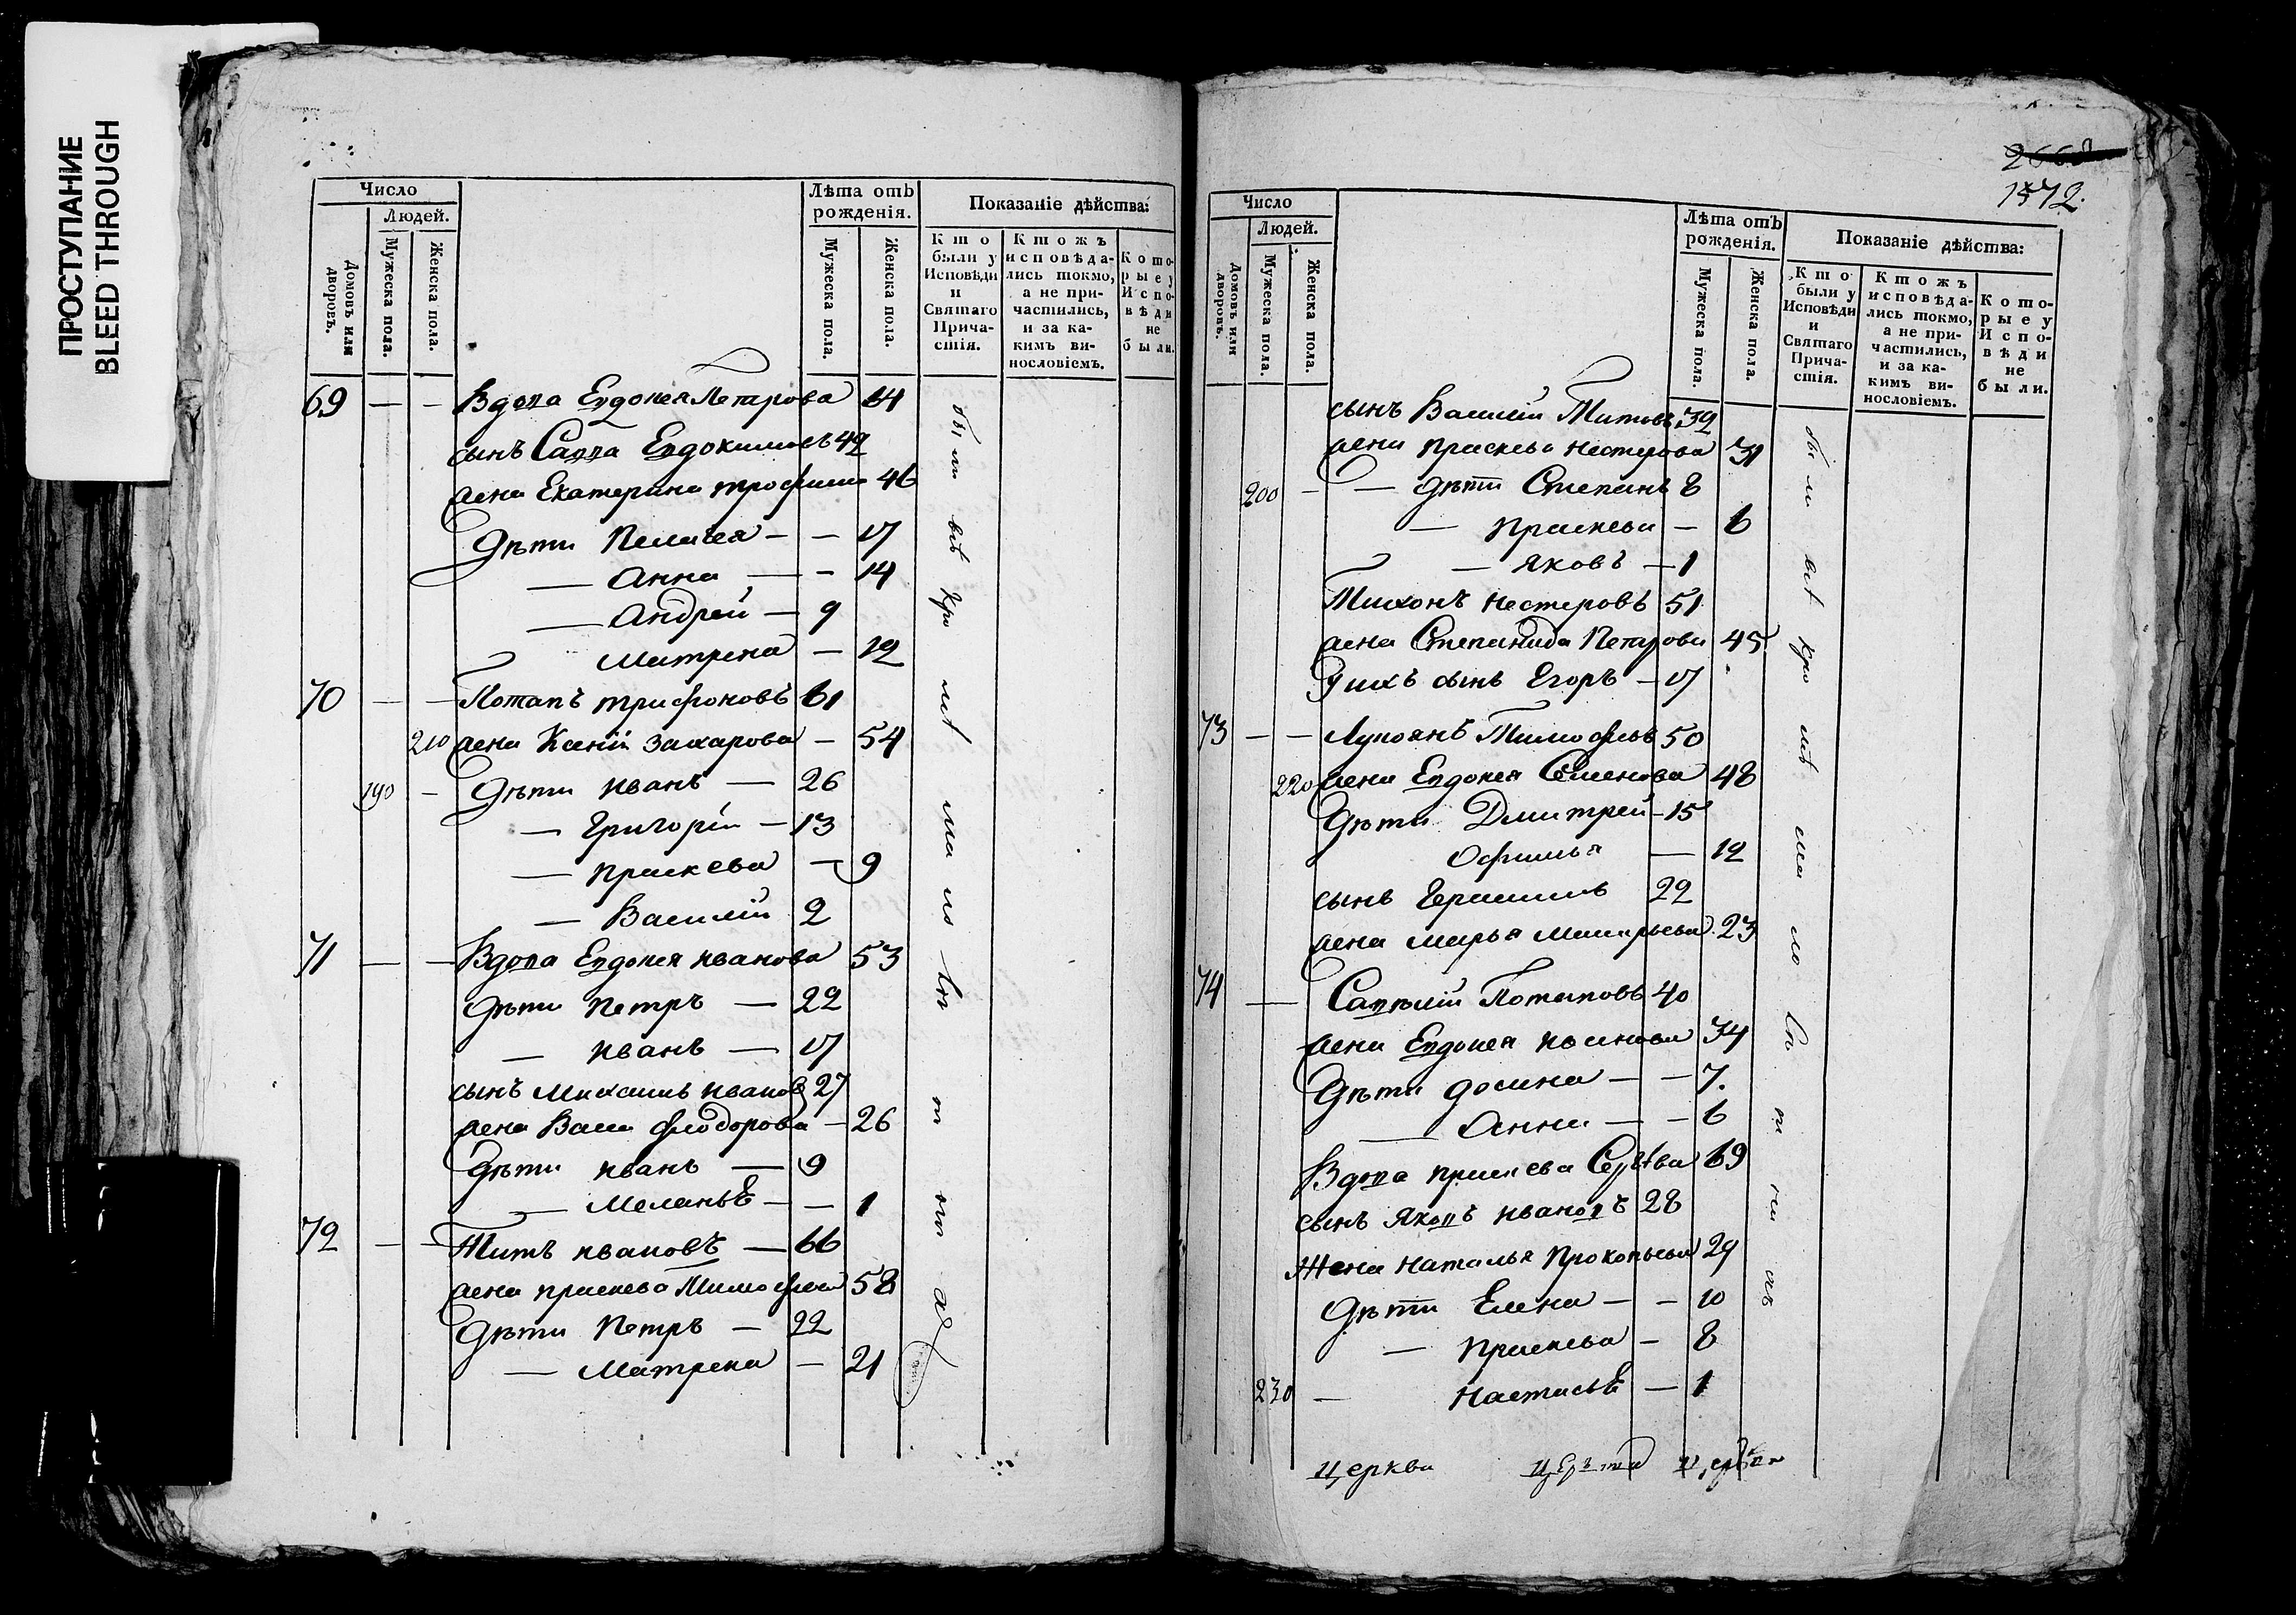 ПРОСТУПАНИЕ
BLEED THROUGH
Число
Людей.
Домовъ или дворовъ.
Мужеска пола.
Женска пола.
Лѣта отъ рожденія.
Мужеска пола.
Женска пола.
Показаніе дѣйства:
Кто были у Исповѣди и Святаго Причастія.
Ктожъ исповѣдались токмо, а не причастились, и за какимъ винословіемъ.
Которые у Исповѣди не были.
69 — — Вдова Евдокея Петрова 64
сынъ Савва Евдокимовъ 42
жена Екатерина трофим 46
Дѣти Пелагея — — 17
— Анна — — 14
— Андрей — 9
Матрена — 12
70 — — Потапъ трифоновъ 61
210 жена Ксенія Захарова — 54
190 — Дѣти иванъ — 26
— Григорій — 13
— праскева — 9
— Василій 2
71 — — Вдова Евдокея иванова 53
Дѣти Петръ — 22
— иванъ — 17
сынъ Михаилъ иванов 27
жена Васи федорова — 26
Дѣти иванъ — 9
— Меланьѣ — — 1
72 — — Титъ ивановъ — 66
жена праскева Тимофееа 58
Дѣти Петръ — 22
— Матрена — 21
были всѣ кро мѣ
1572.
Число
Людей.
Домовъ или дворовъ.
Мужеска пола.
Женска пола.
Лѣта отъ рожденія.
Мужеска пола.
Женска пола.
Показаніе дѣйства:
Кто были у Исповѣди и Святаго Причастія.
Ктожъ исповѣдались токмо, а не причастились, и за какимъ винословіемъ.
Которые у Исповѣди не были.
сынъ Василій Титовъ 32
жена праскева нестерова 31
200 — — дѣти Степанъ 8
— праскева — 6
— яковъ — 1
Тихонъ нестеровъ 51
жена Степанида Петрова 45
ихъ сынъ Егоръ — 17
73 — — Лукоянъ Тимофѣев 50
220 жена Евдокея Семенова 48
Дѣти Дмитрей — 15
Офимья — 12
сынъ Герасимъ 22
жена марья 23
74 — Савѣлій Потаповъ 40
жена Евдокея иванова 34
Дѣти досина — — 7.
— Анна — — 6
Вдова праскева 69
сынъ яковъ ивановъ 28
Жена наталья прокопьева 29
Дѣти Елена — — 10
— праскева — 8
230 — настасьѣ — 1
были всѣ кро мѣ
церкви